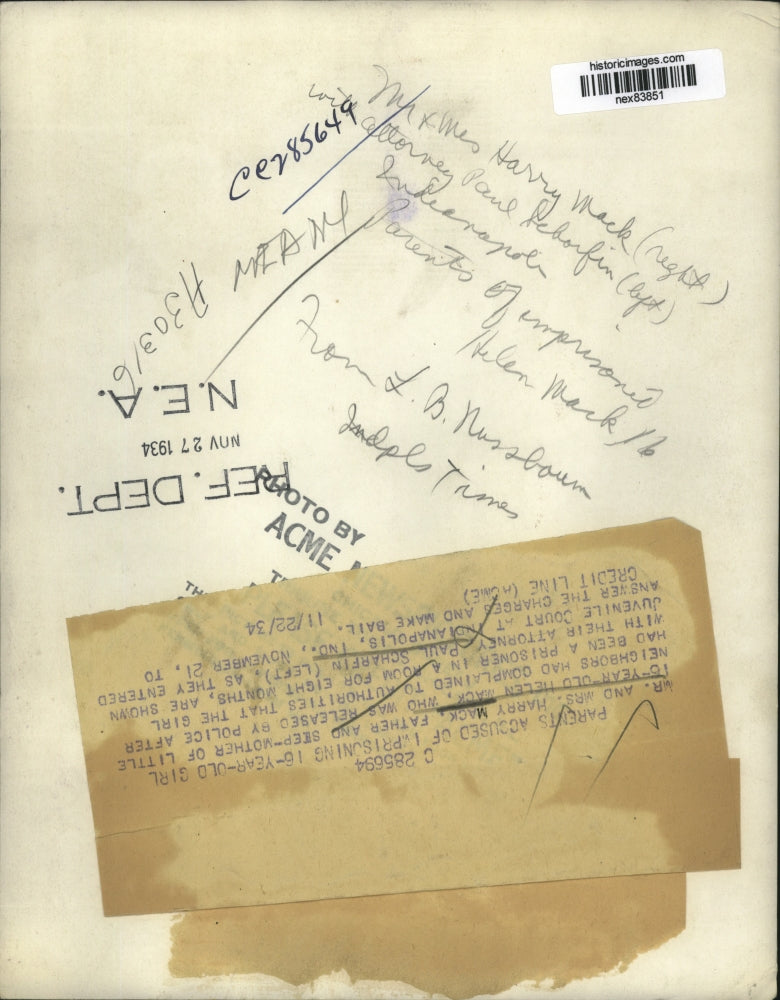 historicimages.com
nex83851
Mr & Mrs Harry Mack (right)
with attorney Paul Scharfin (left)
Indianapolis
Parents of imprisoned
Helen Mack 16
From L. B. Nussbaum
Indpls Times
N.E.A.
NOV 27 1934
REF. DEPT.
PHOTO BY
ACME
C 285694
PARENTS ACCUSED OF IMPRISONING 16-YEAR-OLD GIRL
MR. AND MRS. HARRY MACK, FATHER AND STEP-MOTHER OF LITTLE
16-YEAR-OLD HELEN MACK, WHO WAS RELEASED BY POLICE AFTER
NEIGHBORS HAD COMPLAINED TO AUTHORITIES THAT THE GIRL
HAD BEEN A PRISONER IN A ROOM FOR EIGHT MONTHS, ARE SHOWN
WITH THEIR ATTORNEY PAUL SCHARFIN (LEFT) AS THEY ENTERED
JUVENILE COURT AT INDIANAPOLIS, IND., NOVEMBER 21, TO
ANSWER THE CHARGES AND MAKE BAIL.
CREDIT LINE (ACME) 11/22/34